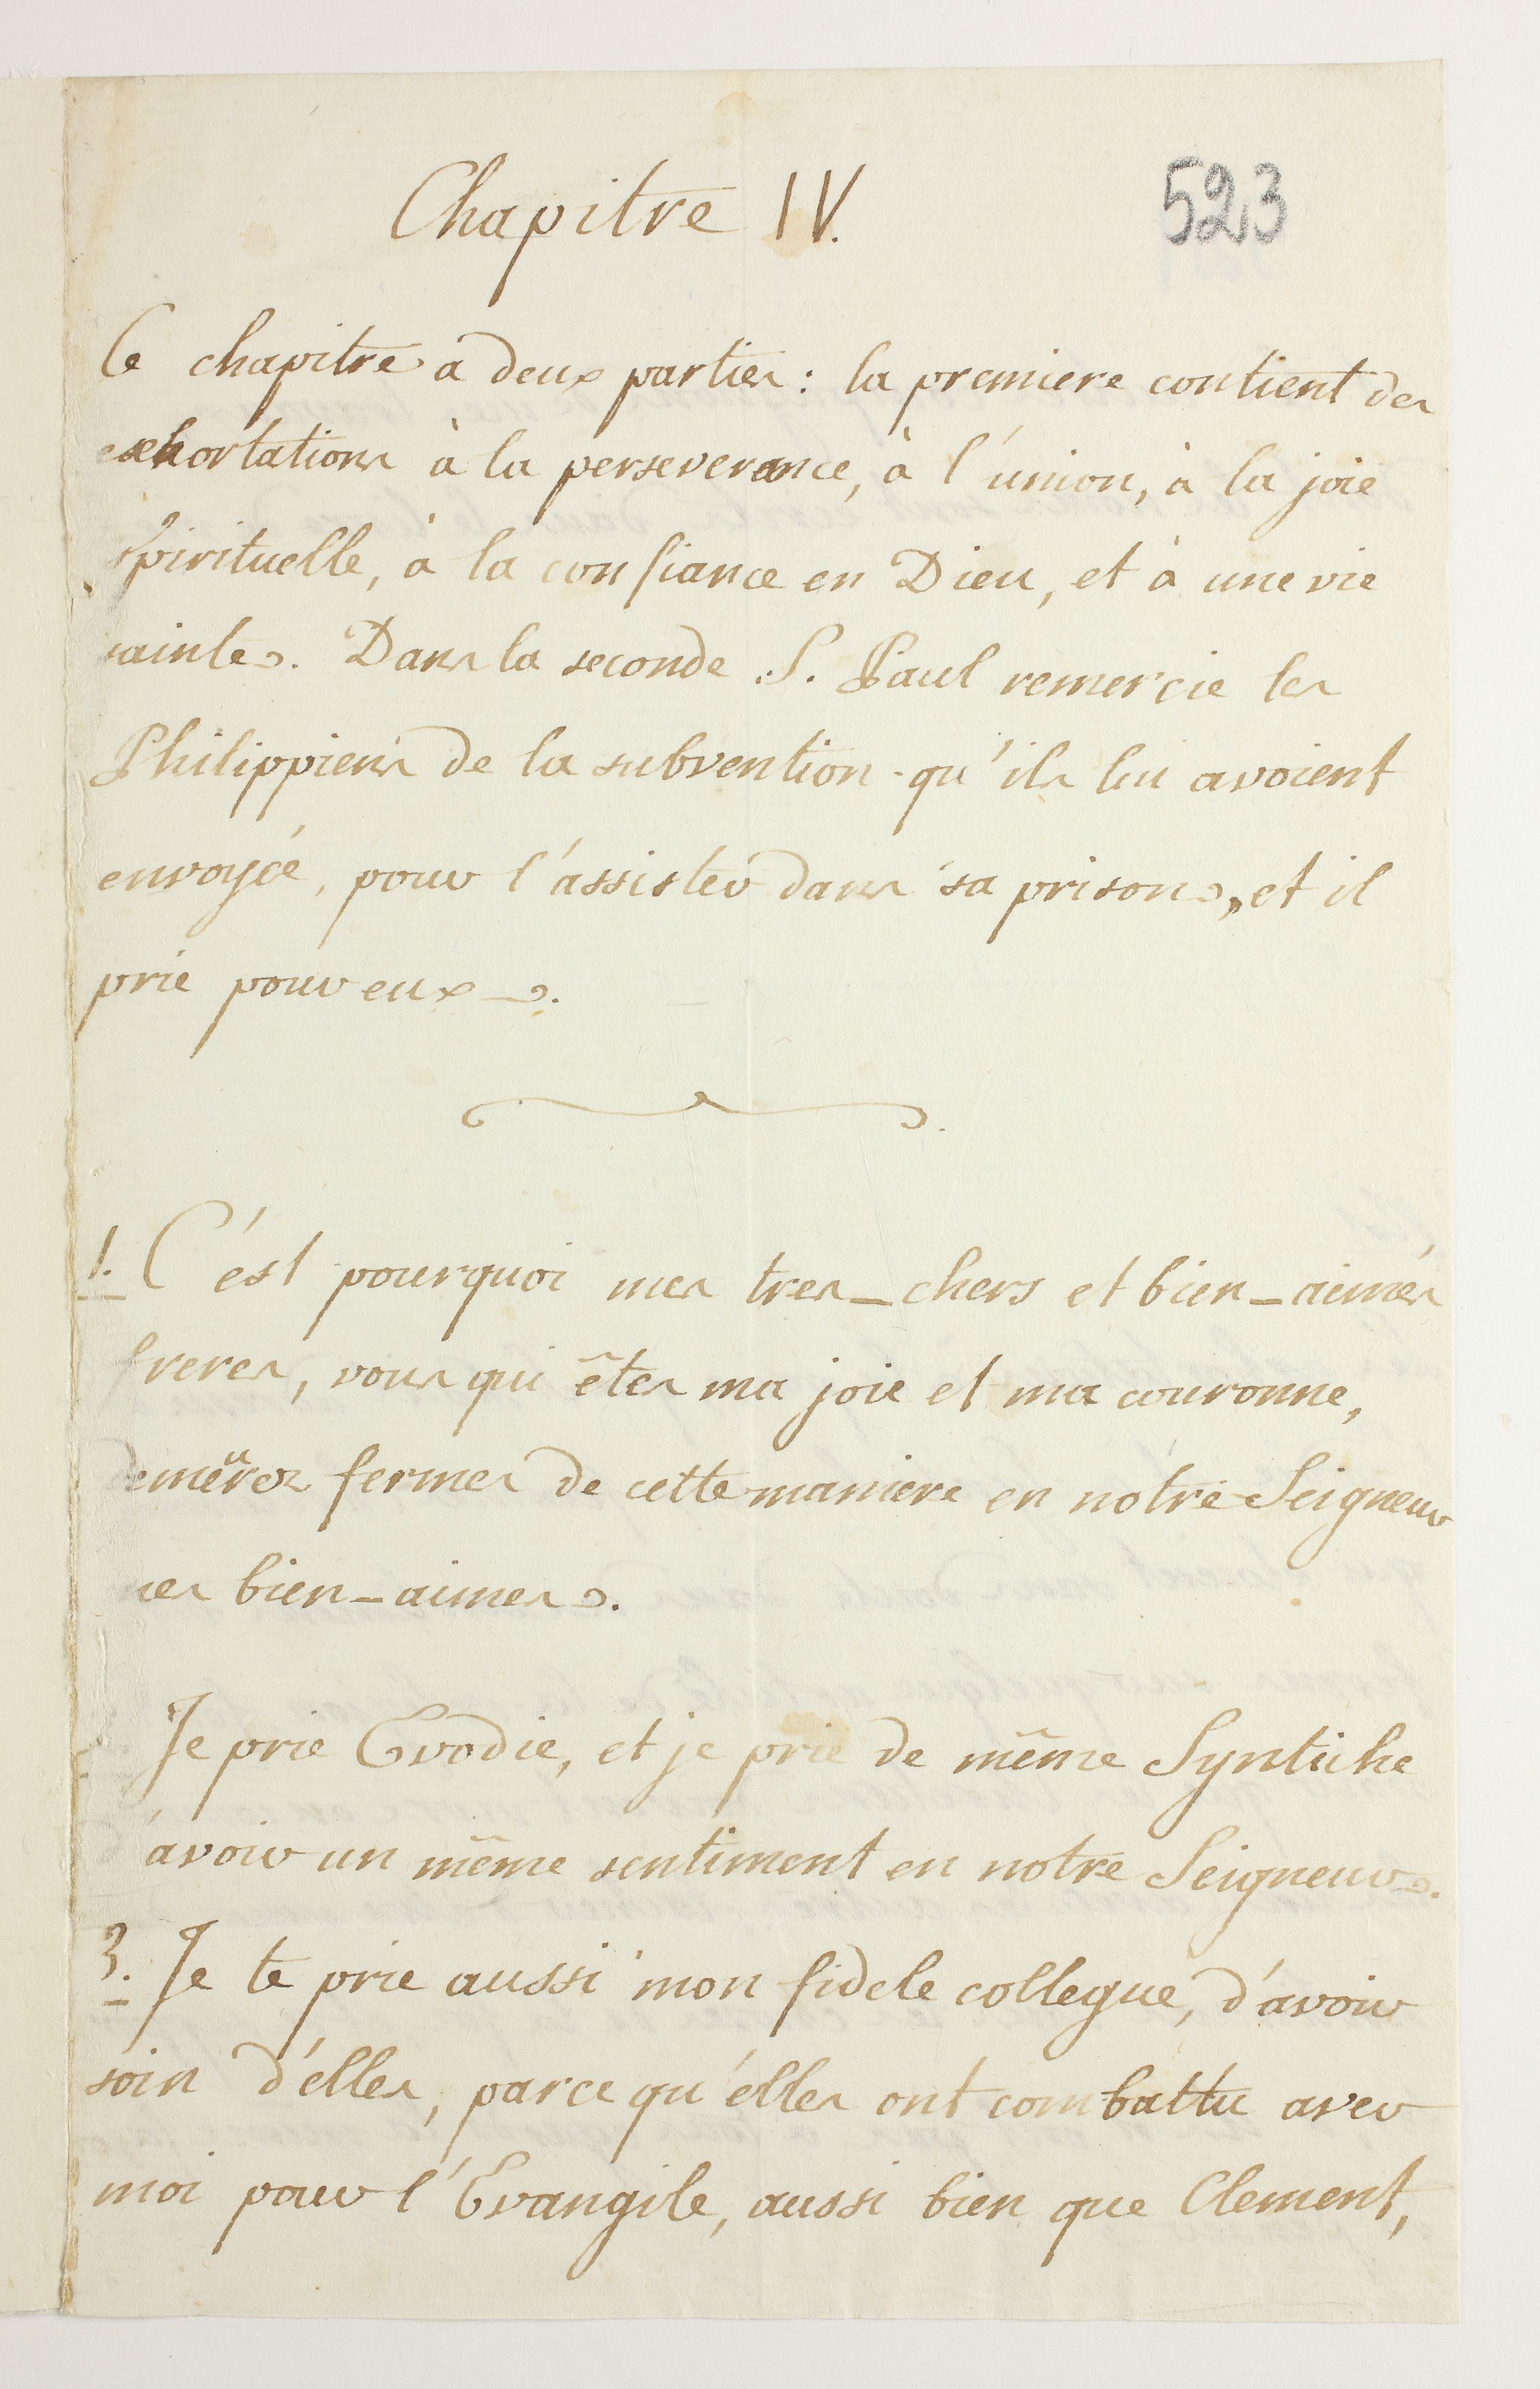 Chapitre IV.
523
Ce chapitre a deux parties : la premiere contient des
exhortations à la perseverance, à l'union, à la joie
spirituelle, à la confiance en Dieu, et à une vie
sainte. Dans la seconde S. Paul remercie les
Philippiens de la subvention qu'ils lui avoient
envoyée, pour l'assister dans sa prison, et il
prie pour eux.
1. C'est pourquoi mes tres-chers et bien-aimés
freres, vous qui êtes ma joie et ma couronne,
demeürez fermes de cette maniere en notre Seigneur
mes bien-aimes.
Je prie Evodie, et je prie de même Syntiche
d'avoir un même sentiment en notre Seigneur.
3. Je te prie aussi mon fidele collegue, d'avoir
soin d'elles, parce qu'elles ont combattu avec
moi pour l'Evangile, aussi bien que Clement,